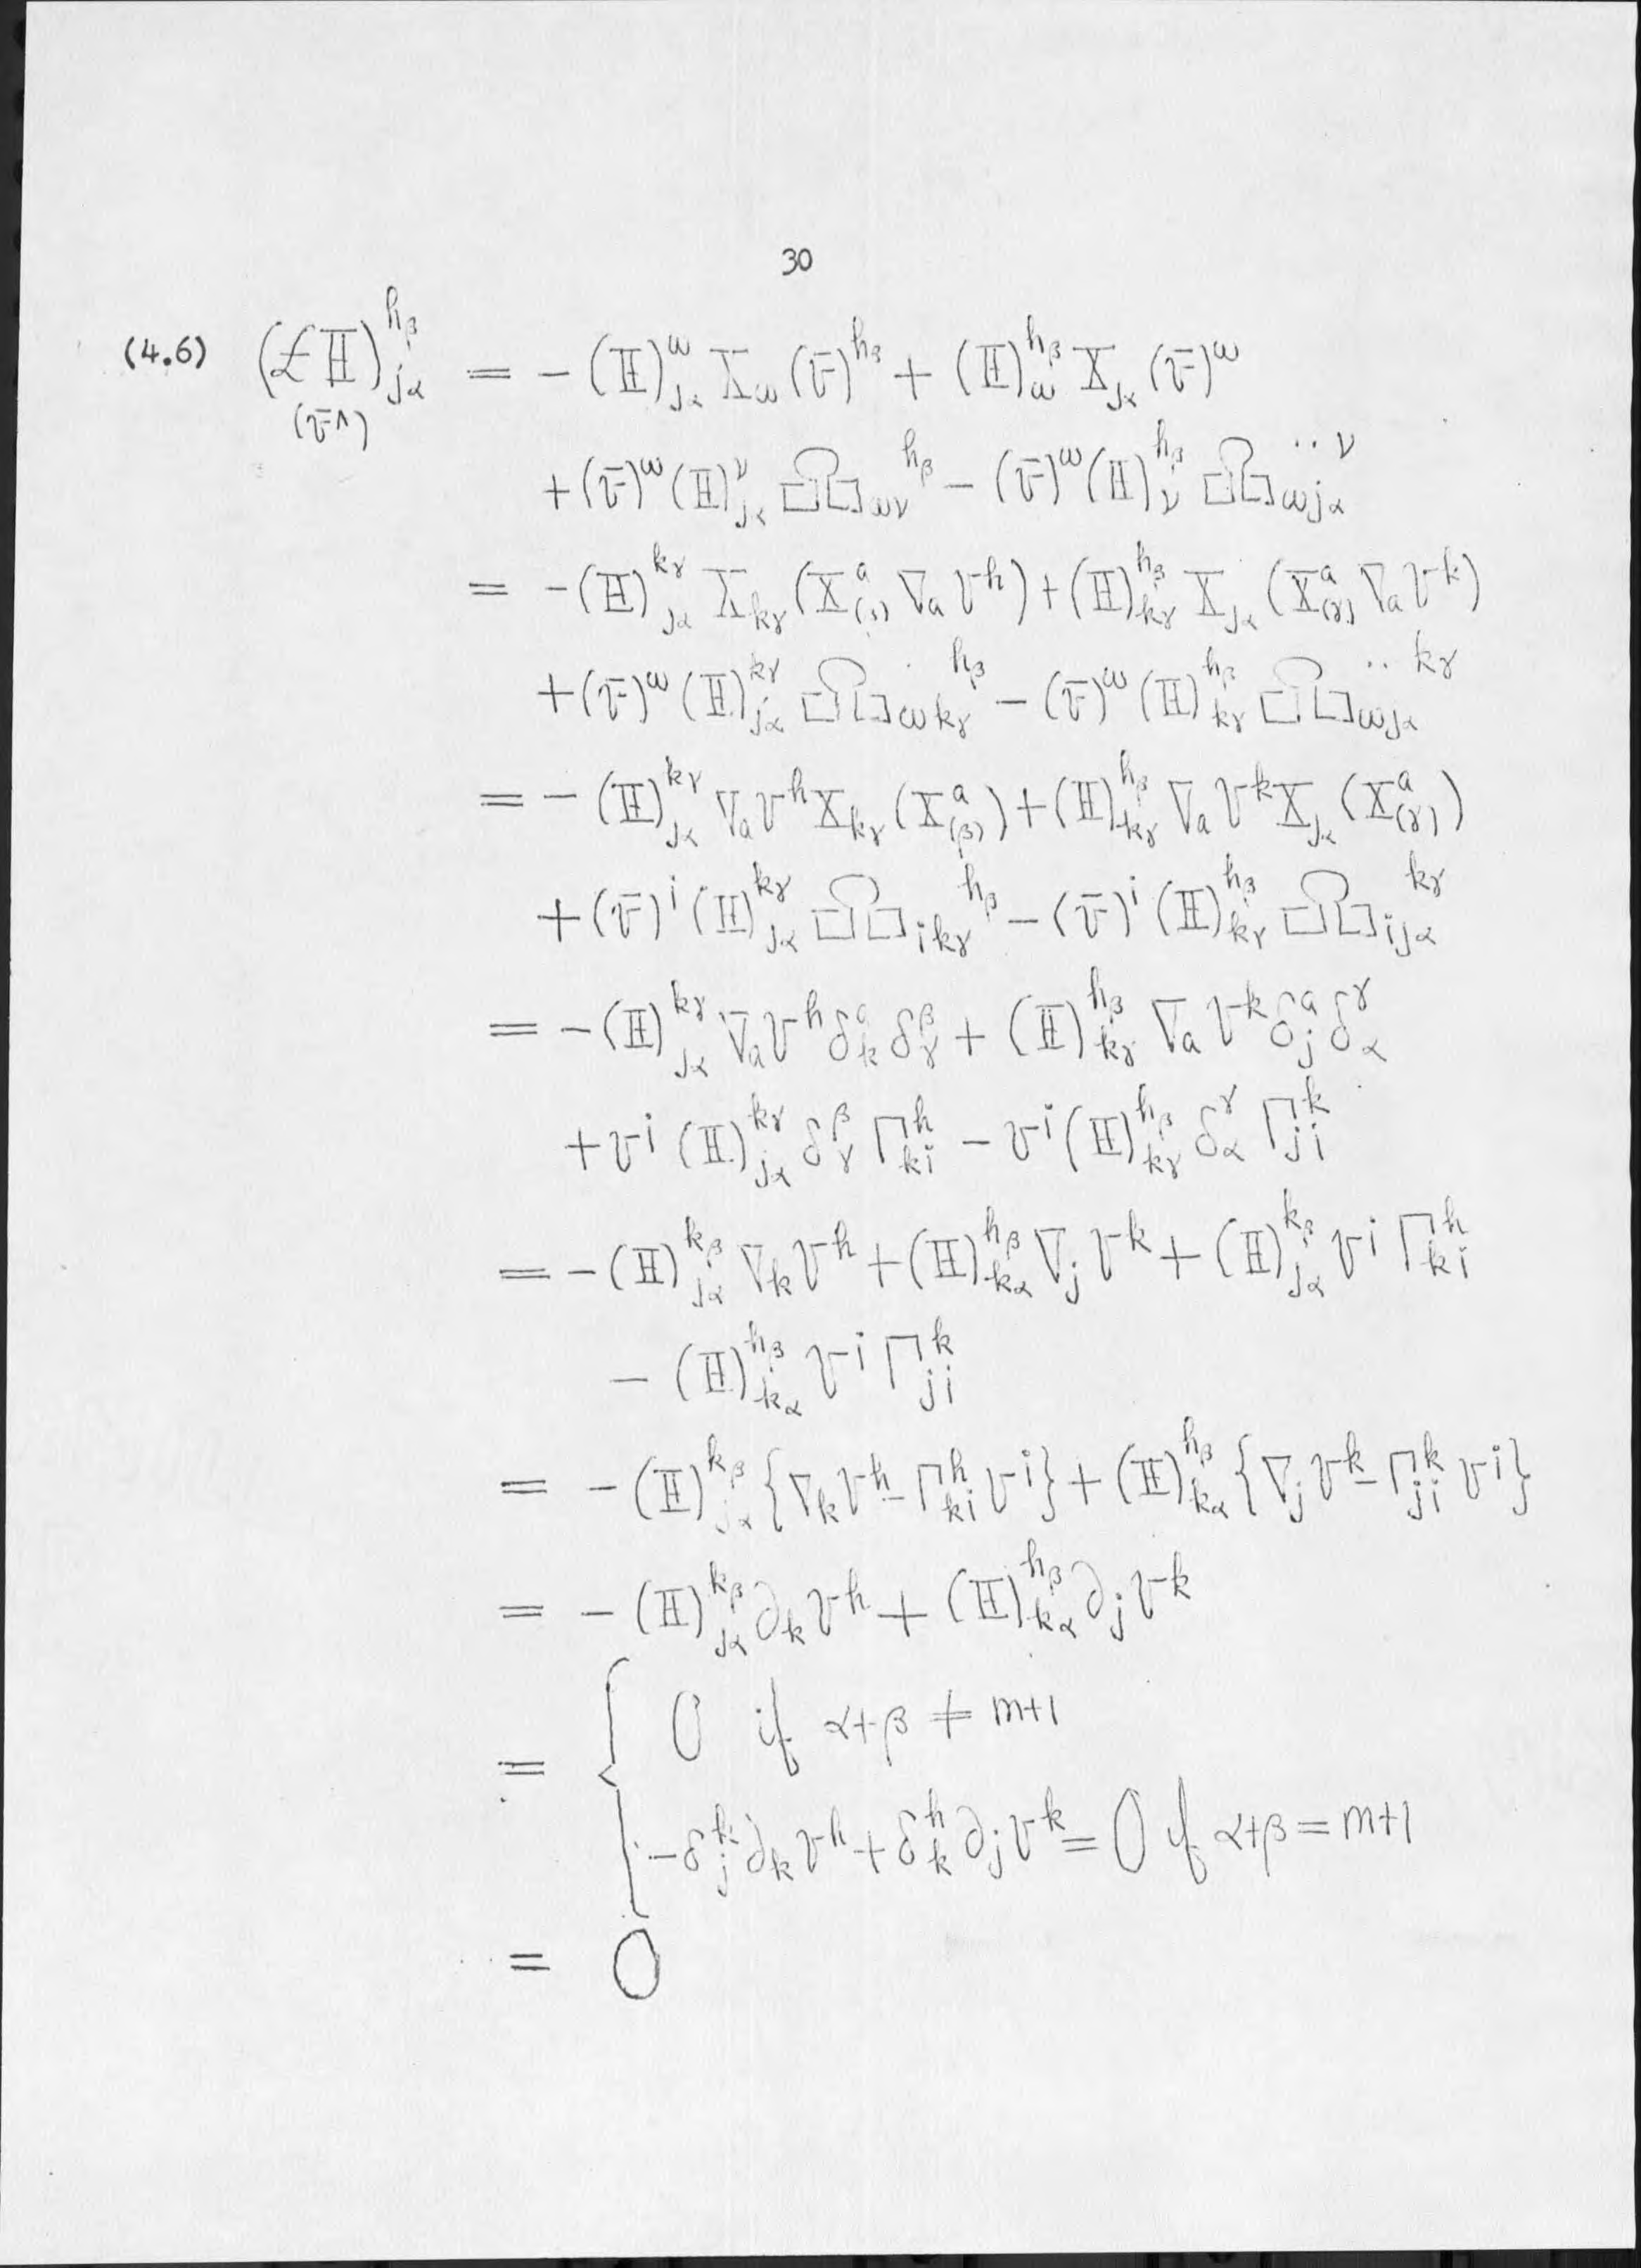 30
(4.6) $(\pounds_{(\bar{v}^\wedge)} \mathbb{H})_{j_\alpha}^{h_\beta} = -(\mathbb{H})_{j_\alpha}^{\omega} X_\omega (\bar{v})^{h_\beta} + (\mathbb{H})_{\omega}^{h_\beta} X_{j_\alpha} (\bar{v})^\omega$
$+ (\bar{v})^\omega (\mathbb{H})_{j_\alpha}^{\nu} \Omega_{\omega\nu}^{\;\;h_\beta} - (\bar{v})^\omega (\mathbb{H})_{\nu}^{h_\beta} \Omega_{\omega j_\alpha}^{\cdot\cdot\;\nu}$
$= -(\mathbb{H})_{j_\alpha}^{k_\gamma} X_{k_\gamma} (X_{(\beta)}^a \nabla_a v^h) + (\mathbb{H})_{k_\gamma}^{h_\beta} X_{j_\alpha} (X_{(\gamma)}^a \nabla_a v^k)$
$+ (\bar{v})^\omega (\mathbb{H})_{j_\alpha}^{k_\gamma} \Omega_{\omega k_\gamma}^{\;\cdot\;h_\beta} - (\bar{v})^\omega (\mathbb{H})_{k_\gamma}^{h_\beta} \Omega_{\omega j_\alpha}^{\cdot\cdot\;k_\gamma}$
$= -(\mathbb{H})_{j_\alpha}^{k_\gamma} \nabla_a v^h X_{k_\gamma} (X_{(\beta)}^a) + (\mathbb{H})_{k_\gamma}^{h_\beta} \nabla_a v^k X_{j_\alpha} (X_{(\gamma)}^a)$
$+ (\bar{v})^i (\mathbb{H})_{j_\alpha}^{k_\gamma} \Omega_{i k_\gamma}^{\;\;h_\beta} - (\bar{v})^i (\mathbb{H})_{k_\gamma}^{h_\beta} \Omega_{i j_\alpha}^{\;\;k_\gamma}$
$= -(\mathbb{H})_{j_\alpha}^{k_\gamma} \nabla_a v^h \delta_k^a \delta_\gamma^\beta + (\mathbb{H})_{k_\gamma}^{h_\beta} \nabla_a v^k \delta_j^a \delta_\alpha^\gamma$
$+ v^i (\mathbb{H})_{j_\alpha}^{k_\gamma} \delta_\gamma^\beta \Gamma_{ki}^h - v^i (\mathbb{H})_{k_\gamma}^{h_\beta} \delta_\alpha^\gamma \Gamma_{ji}^k$
$= -(\mathbb{H})_{j_\alpha}^{k_\beta} \nabla_k v^h + (\mathbb{H})_{k_\alpha}^{h_\beta} \nabla_j v^k + (\mathbb{H})_{j_\alpha}^{k_\beta} v^i \Gamma_{ki}^h$
$- (\mathbb{H})_{k_\alpha}^{h_\beta} v^i \Gamma_{ji}^k$
$= -(\mathbb{H})_{j_\alpha}^{k_\beta} \{\nabla_k v^h - \Gamma_{ki}^h v^i\} + (\mathbb{H})_{k_\alpha}^{h_\beta} \{\nabla_j v^k - \Gamma_{ji}^k v^i\}$
$= -(\mathbb{H})_{j_\alpha}^{k_\beta} \partial_k v^h + (\mathbb{H})_{k_\alpha}^{h_\beta} \partial_j v^k$
$= \{ 0 \text{ if } \alpha+\beta \neq m+1$
$-\delta_j^k \partial_k v^h + \delta_k^h \partial_j v^k = 0 \text{ if } \alpha+\beta = m+1$
$= 0$